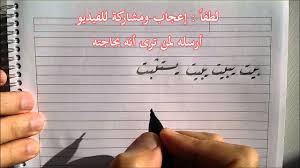 لطفاً : إعجاب ومشاركة للفيديو
أرسله لمن ترى أنه بحاجته
بيت يبيت يستثبت